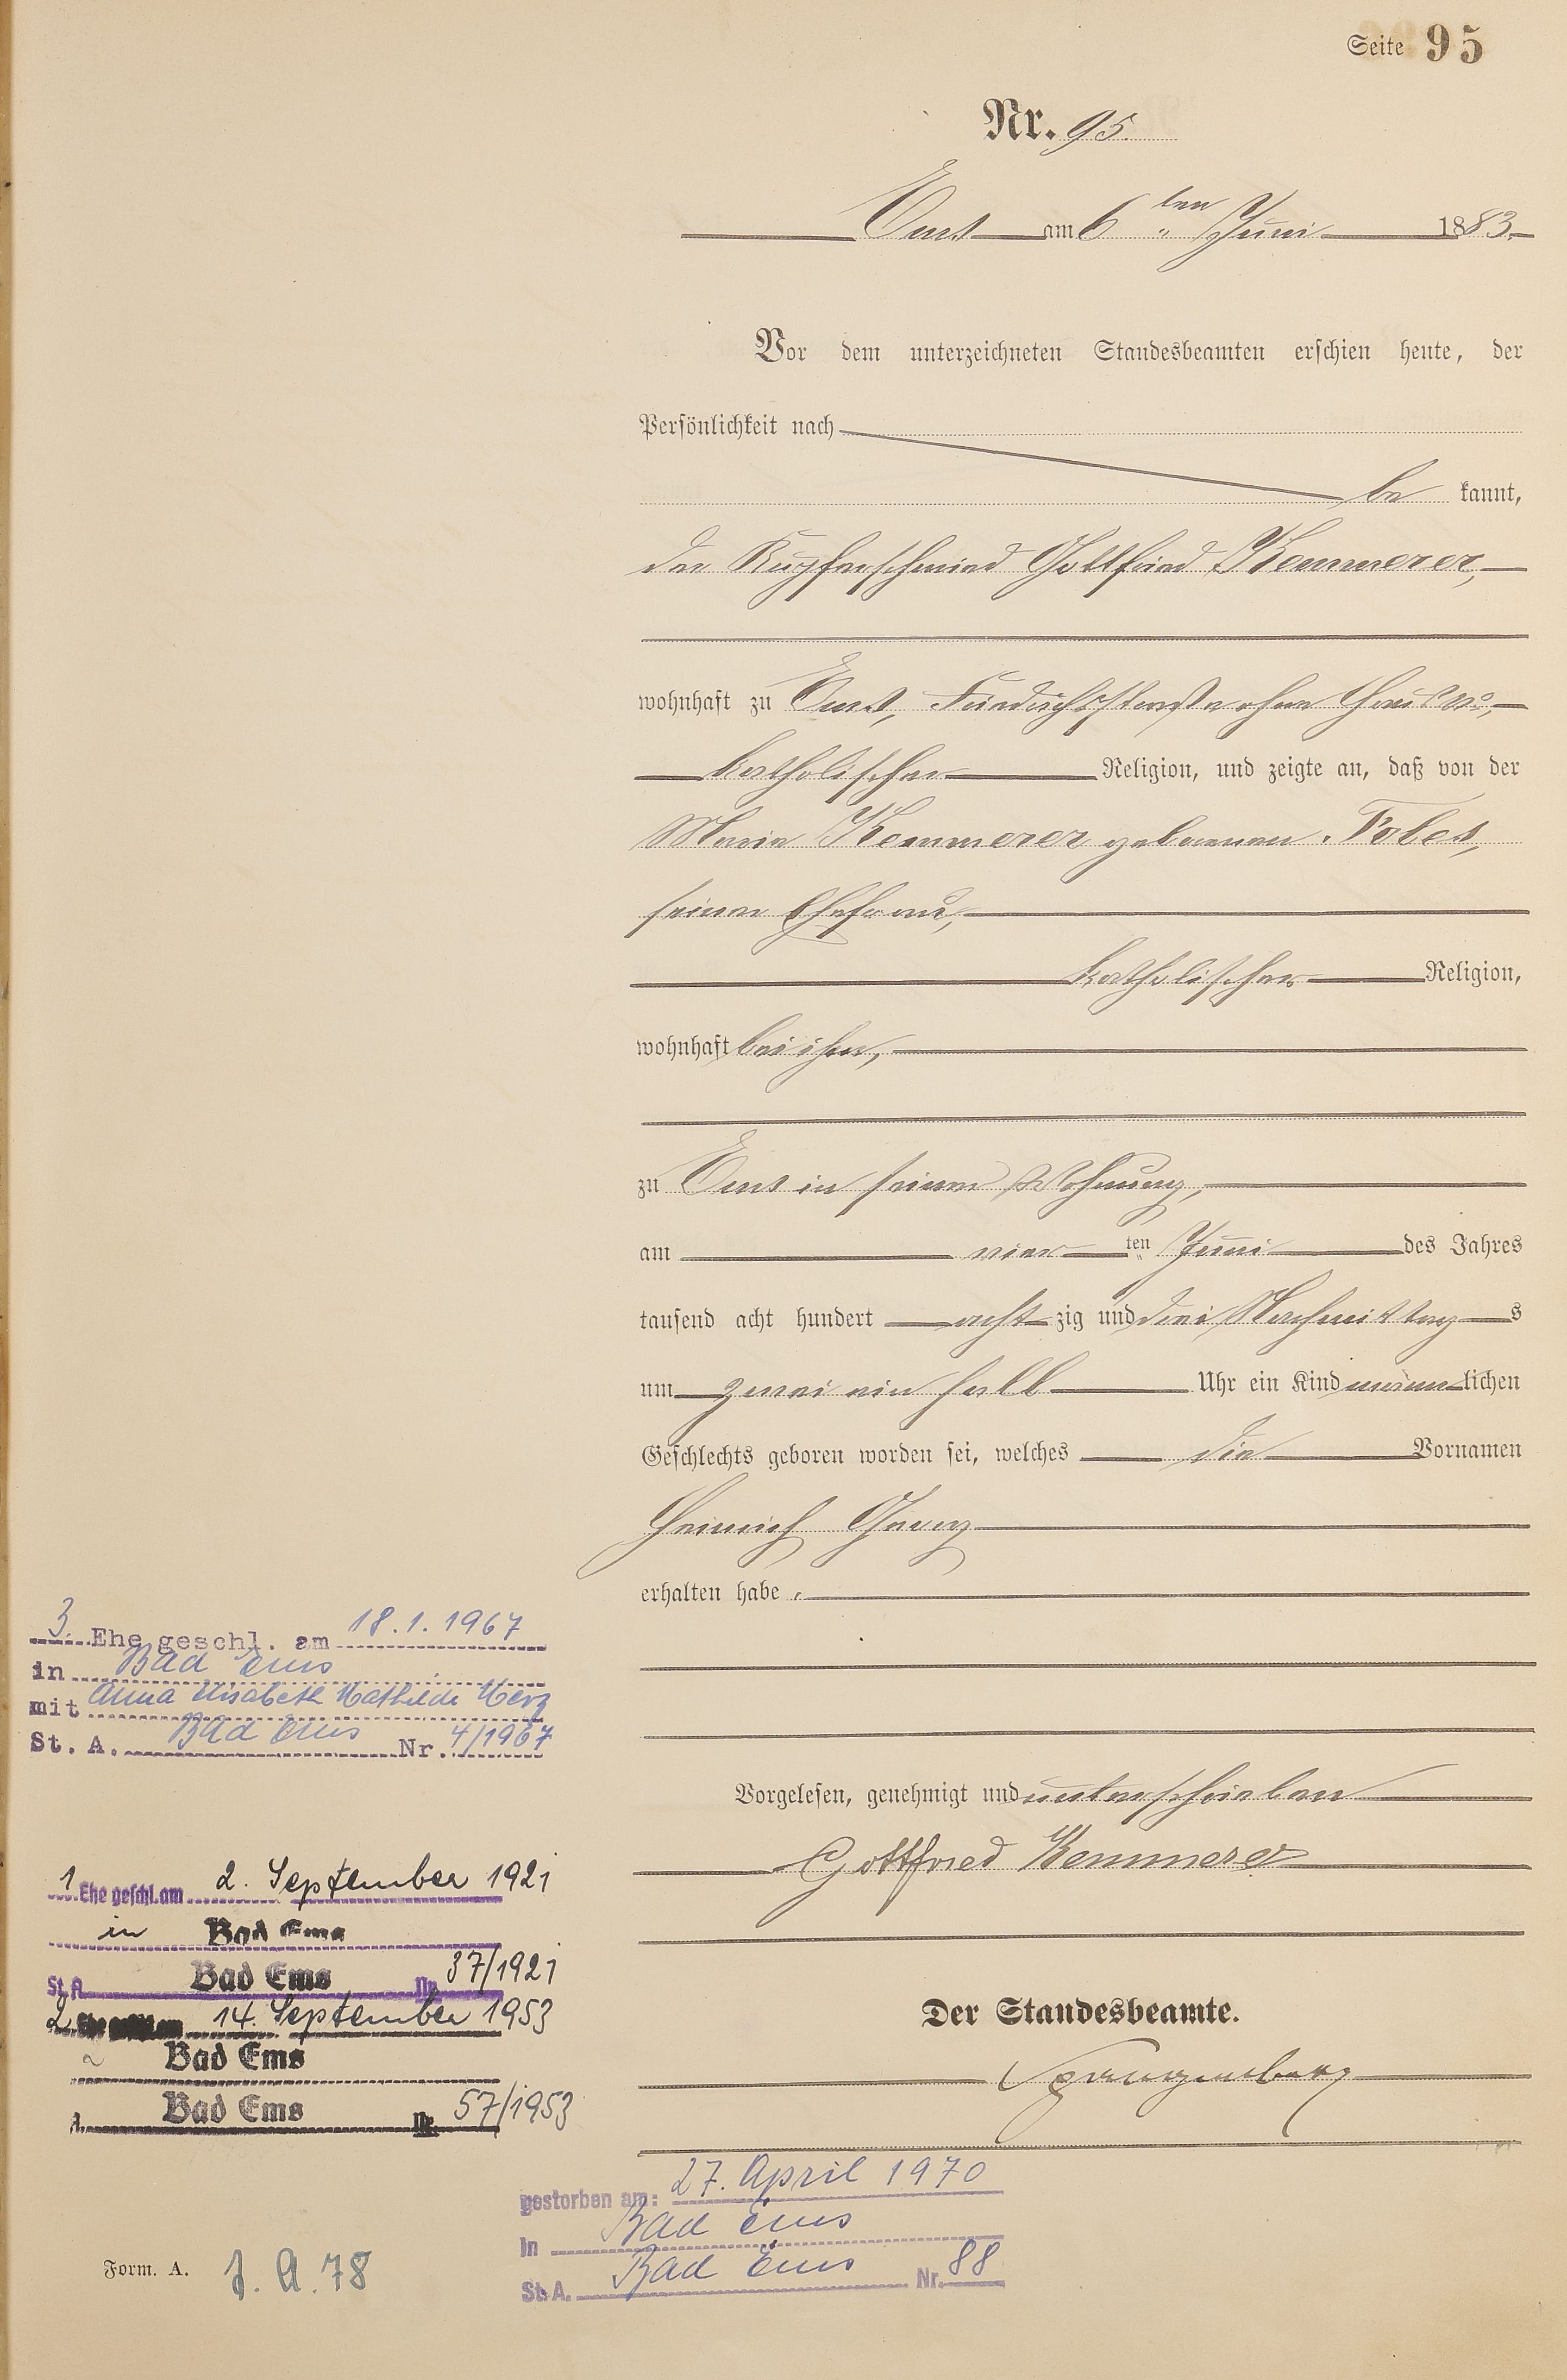 Seite 95
Nr. 95.
Ems am 6 ten Juni 1883.
Vor dem unterzeichneten Standesbeamten erschien heute, der
Persönlichkeit nach
be kannt,
der Kupferschmied Gottfried Kemmerer,
wohnhaft zu Ems, Friedrichsstraße ohne Haus No,
katholischer Religion, und zeigte an, daß von der
Maria Kemmerer geborenen Fabes,
seiner Ehefrau,
katholischer Religion,
wohnhaft bei ihm,
zu Ems in seiner Wohnung,
am vier ten Juni des Jahres
tausend acht hundert acht zig und drei Nachmittag s
um zwei ein halb Uhr ein Kind männ lichen
Geschlechts geboren worden sei, welches die Vornamen
Heinrich Georg
erhalten habe.
Vorgelesen, genehmigt und unterschrieben
Gottfried Kemmerer
Der Standesbeamte.
Spangenberg
3. Ehe geschl. am 18.1.1967
in Bad Ems
mit Anna Elisabeth Mathilde Merz
St. A. Bad Ems Nr. 4/1967
1 Ehe geschl. am 2. September 1921
in Bad Ems
St. A. Bad Ems Nr. 37/1921
2. Ehe geschl. am 14. September 1953
Bad Ems
A. Bad Ems Nr. 57/1953
gestorben am: 27. April 1970
In Bad Ems
St. A. Bad Ems Nr. 88
Form. A. J. A. 78